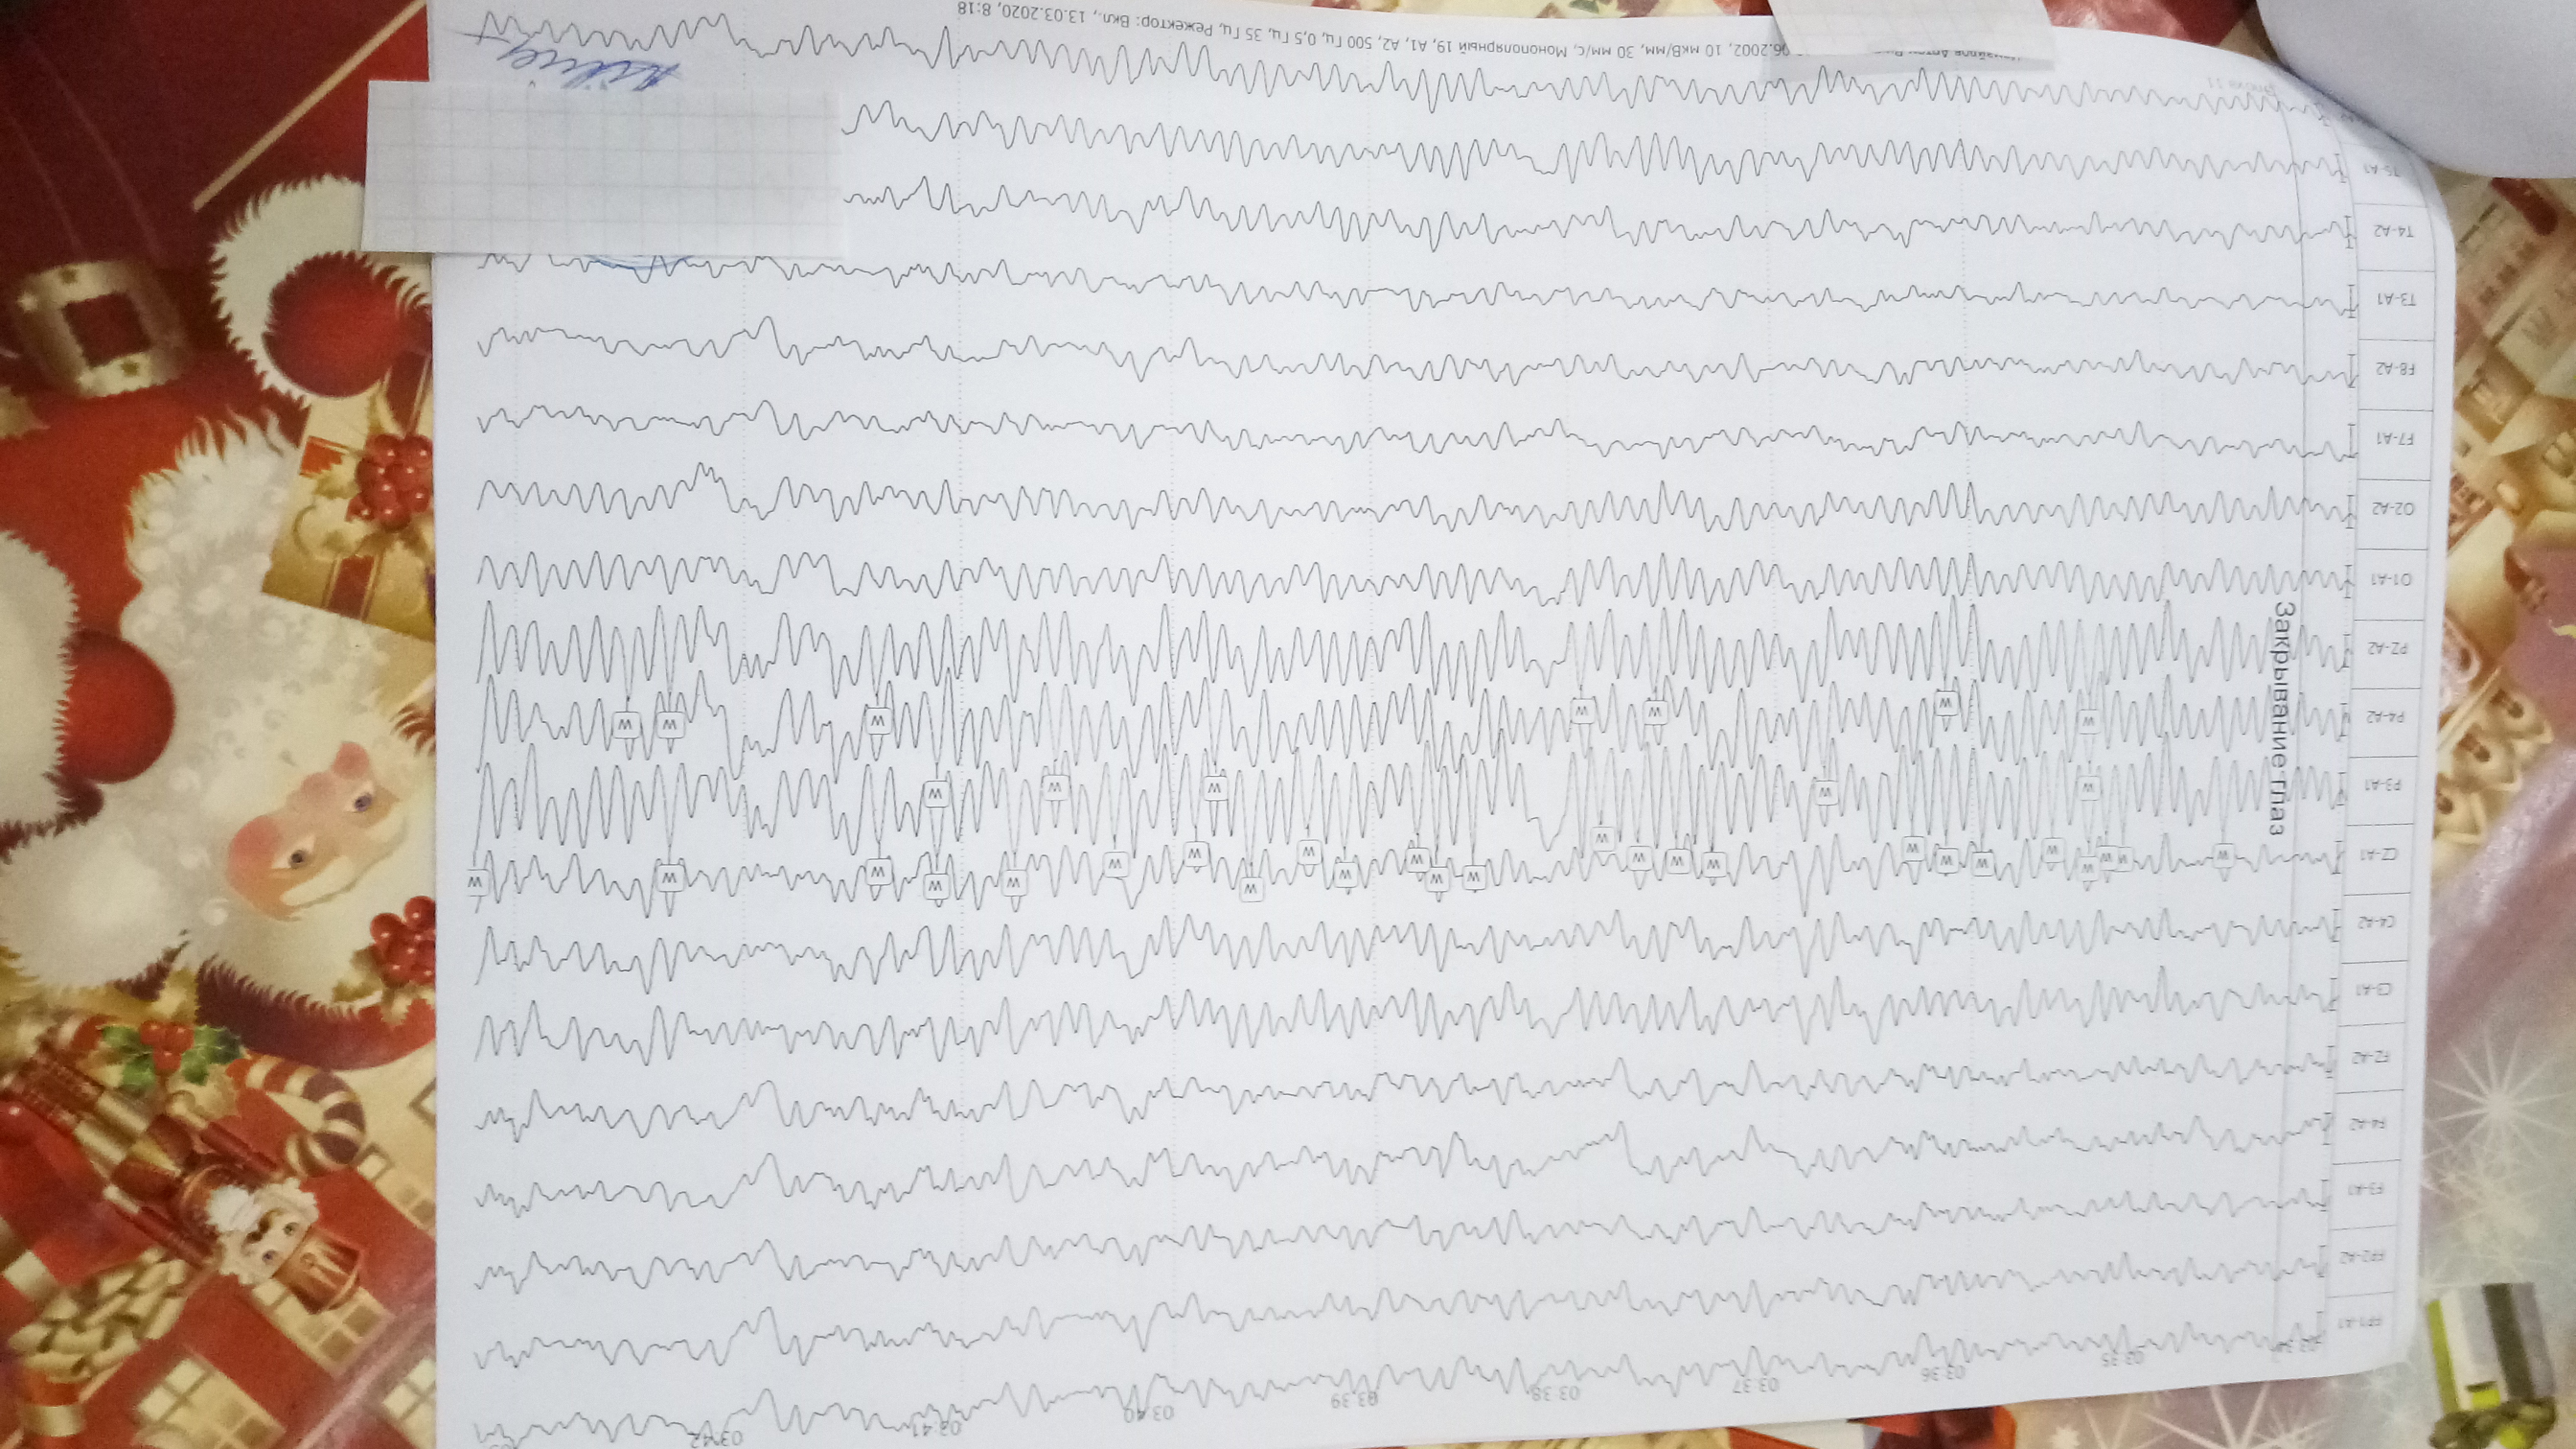 03:35 03:36 03:37 03:38 03:39 03:40 03:41 03:42
FP1-A1
FP2-A2
F3-A1
F4-A2
FZ-A2
C3-A1
C4-A2
CZ-A1
P3-A1
P4-A2
PZ-A2
O1-A1
O2-A2
F7-A1
F8-A2
T3-A1
T4-A2
T5-A1
Закрывание глаз
06.2002, 10 мкВ/мм, 30 мм/с, Монополярный 19, A1, A2, 500 Гц, 0,5 Гц, 35 Гц, Режектор: Вкл., 13.03.2020, 8:18